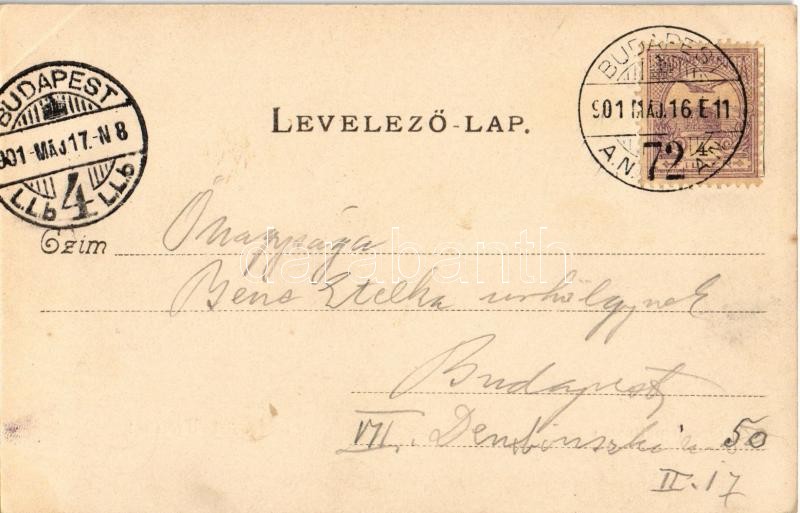 BUDAPEST
901 MÁJ.16 E 11
72
A.N. A.N.
BUDAPEST
901-MÁJ 17.-N 8
4
LEVELEZŐ-LAP.
Czim Őnagysága
Bene Etelka urhölgynek
Budapest
VII. Dembinszky u 50
II. 17
darabanth